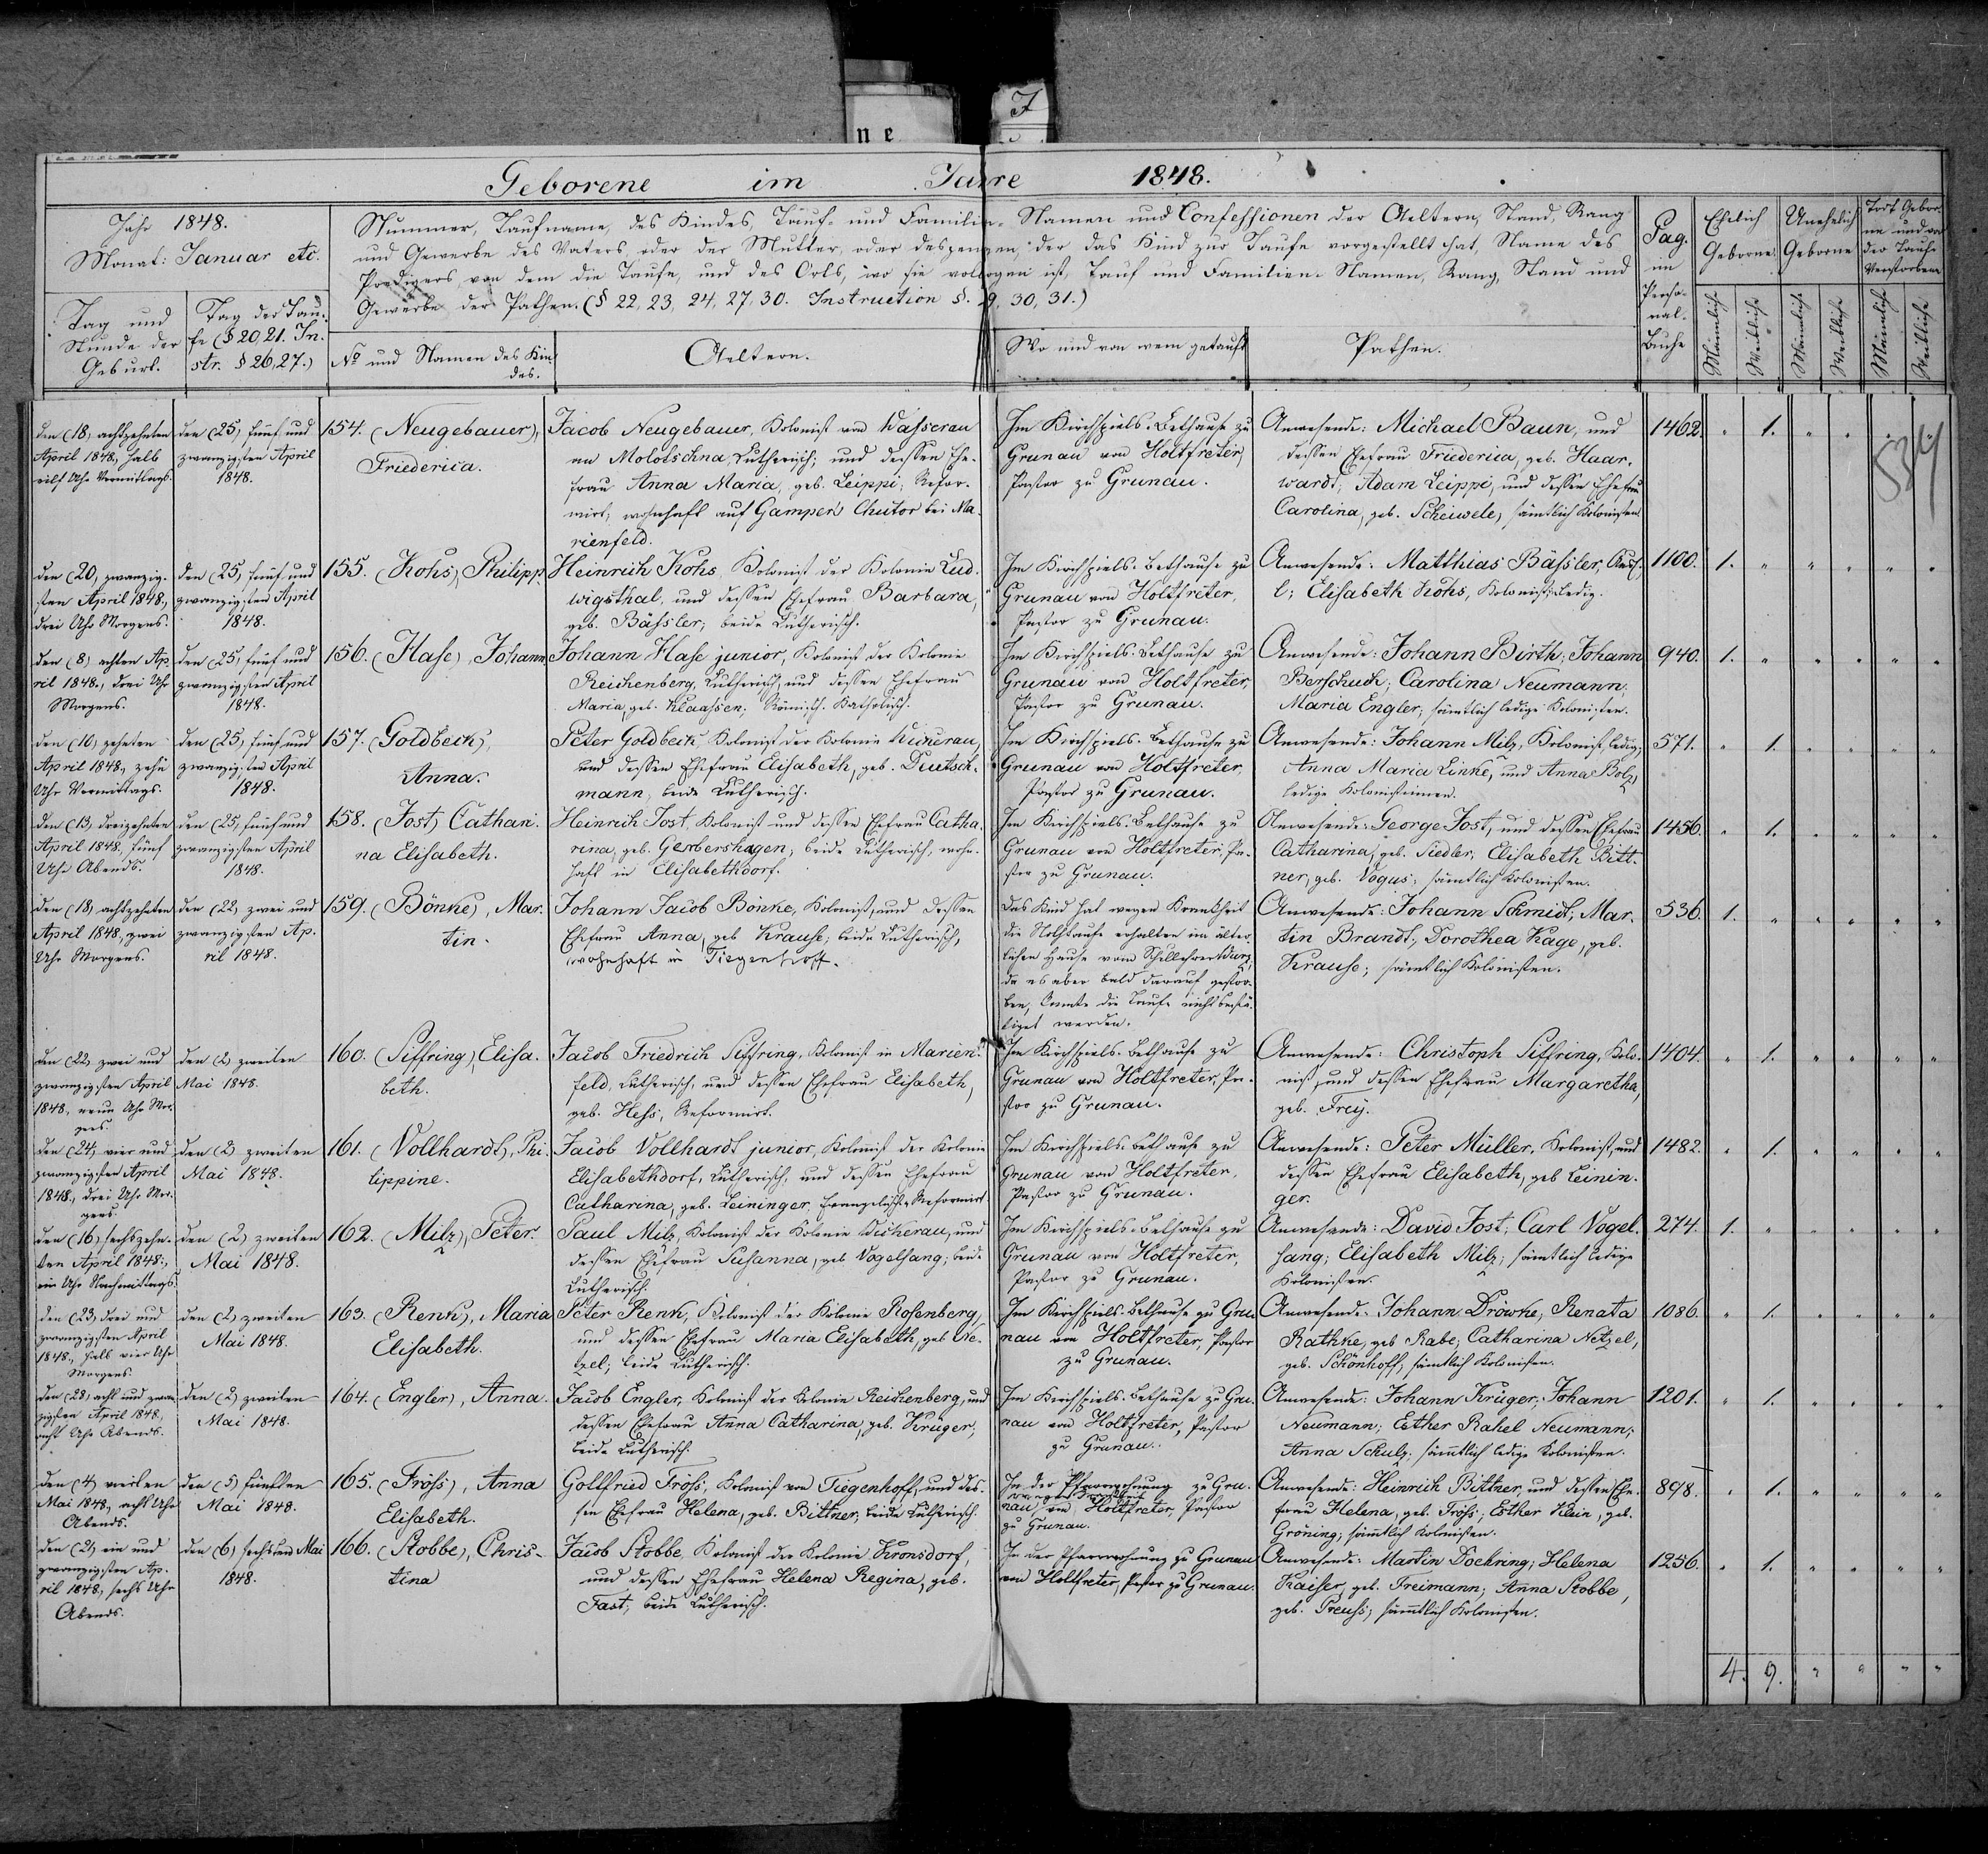 n e
F
Geborene im Jahre 1848.
Jahr 1848.
Monat: Januar etc.
Tag und
Stunde der
Geburt.
Tag der Tau-
fe (§ 20, 21. In-
str. § 26, 27.)
Nummer, Taufname, des Kindes, Tauf- und Familien-Namen und Confessionen der Aeltern, Stand, Rang
und Gewerbe des Vaters oder der Mutter, oder deszengen, der das Kind zur Taufe vorgestellt hat, Name des
Predigers von dem die Taufe, und des Orts, wo sie vollzogen ist, Tauf und Familien-Namen, Rang, Stand und
Gewerbe der Pathen. (§ 22, 23, 24, 27, 30. Instruction §. 29, 30, 31.)
No und Namen des Kin-
des.
Aeltern.
Wo und von wem getauft
Pathen.
Pag.
im
Perso-
nal-
Buche
Ehelich
Geborne.
Unehelich
Geborne
Todt Gebor-
ne und vor
der Taufe
Verstorbene
Männlich
Weiblich
Männlich
Weiblich
Männlich
Weiblich
534
den (18) achtzehnten
April 1848, halb
eilf Uhr Vormittags.
den (25) fünf und
zwanzigsten April
1848.
154. (Neugebauer),
Friederica.
Jacob Neugebauer, Kolonist von Wasserau
an Molotschna, Lutherisch; und dessen Ehe-
frau Anna Maria, geb. Leippi, Refor-
mirt; wohnhaft auf Gampen Chutor bei Ma-
rienfeld.
Im Kirchspiels-Bethause zu
Grunau von Holtfreter,
Pastor zu Grunau.
Anwesende: Michael Baun, und
dessen Ehefrau Friederica, geb. Haar-
wardt; Adam Leippi, und dessen Ehefrau
Carolina, geb. Scheiwele, sämtlich Kolonisten.
1462. " 1. " " " "
den (20) zwanzig-
sten April 1848,
drei Uhr Morgens.
den (25) fünf und
zwanzigsten April
1848.
155. (Kohs), Philipp.
Heinrich Kohs, Kolonist der Kolonie Lud-
wigsthal, und dessen Ehefrau Barbara,
geb. Bässler; beide Lutherisch.
Im Kirchspiels-Bethause zu
Grunau von Holtfreter,
Pastor zu Grunau.
Anwesende: Matthias Bässler,
Elisabeth Kohs, Kolonist, Ledig.
1100. 1. " " " " "
den (8) achten Ap-
ril 1848, drei Uhr
Morgens.
den (25) fünf und
zwanzigsten April
1848.
156. (Hase), Johann.
Johann Hase junior, Kolonist der Kolonie
Reichenberg, Lutherisch, und dessen Ehefrau
Maria, geb. Klaassen, Römisch-Katholisch.
Im Kirchspiels-Bethause zu
Grunau von Holtfreter,
Pastor zu Grunau.
Anwesende: Johann Birth; Johann
Berschuck; Carolina Neumann;
Maria Engler; sämtlich ledige Kolonisten.
940. 1. " " " " "
den (10) zehnten
April 1848, zehn
Uhr Vormittags.
den (25) fünf und
zwanzigsten April
1848.
157. (Goldbeck),
Anna.
Peter Goldbeck, Kolonist der Kolonie Wickerau,
und dessen Ehefrau Elisabeth, geb. Deutsch-
mann, beide Lutherisch.
Im Kirchspiels-Bethause zu
Grunau von Holtfreter,
Pastor zu Grunau.
Anwesende: Johann Milz, Kolonist, ledig;
Anna Maria Linke, und Anna Bolz,
ledige Kolonistinnen.
571. " 1. " " " "
den (13) dreizehnten
April 1848, fünf
Uhr Abends.
den (25) fünf und
zwanzigsten April
1848.
158. (Jost) Cathari-
na Elisabeth.
Heinrich Jost, Kolonist und dessen Ehefrau Catha-
rina, geb. Gerbershagen; beide Lutherisch, wohn-
haft in Elisabethdorf.
Im Kirchspiels-Bethause zu
Grunau von Holtfreter, Pa-
stor zu Grunau.
Anwesende: George Jost, und dessen Ehefrau
Catharina, geb. Siedler; Elisabeth Bitt-
ner, geb. Vogus; sämtlich Kolonisten.
1456. " 1. " " " "
den (18) achtzehnten
April 1848, zwei
Uhr Morgens.
den (22) zwei und
zwanzigsten Ap-
ril 1848.
159. (Bönke), Mar-
tin.
Johann Jacob Bönke, Kolonist, und dessen
Ehefrau Anna, geb. Krause; beide Lutherisch,
wohnhaft in Tiegenhoff.
Das Kind hat wegen Krankheit
die Nothtaufe erhalten im älter-
lichen Hause vom Schullehrer
da es aber bald darauf gestor-
ben, konnte die Taufe nicht bestä-
tiget werden.
Anwesende: Johann Schmidt; Mar-
tin Brandt; Dorothea Kage, geb.
Krause; sämtlich Kolonisten.
536. 1. " " " " "
den (22) zwei und
zwanzigsten April
1848, neun Uhr Mor-
gens.
den (2) zweiten
Mai 1848.
160. (Siffring), Elisa-
beth.
Jacob Friedrich Siffring, Kolonist in Marien-
feld, Lutherisch, und dessen Ehefrau Elisabeth,
geb. Hess, Reformirt.
Im Kirchspiels-Bethause zu
Grunau von Holtfreter, Pa-
stor zu Grunau.
Anwesende: Christoph Siffring, Kolo-
nist, und dessen Ehefrau Margaretha,
geb. Frey.
1404. " 1. " " " "
den (24) vier und
zwanzigsten April
1848, drei Uhr Mor-
gens.
den (2) zweiten
Mai 1848.
161. (Vollhardt), Phi-
lippine.
Jacob Vollhardt junior, Kolonist der Kolonie
Elisabethdorf, Lutherisch, und dessen Ehefrau
Catharina, geb. Leininger, Evangelisch-Reformirt.
Im Kirchspiels-Bethause zu
Grunau von Holtfreter,
Pastor zu Grunau.
Anwesende: Peter Müller, Kolonist, und
dessen Ehefrau Elisabeth, geb. Leinin-
ger.
1482. " 1. " " " "
den (16) sechszehn-
ten April 1848,
ein Uhr Nachmittags.
den (2) zweiten
Mai 1848.
162. (Milz), Peter.
Paul Milz, Kolonist der Kolonie Wickerau, und
dessen Ehefrau Susanna, geb. Vogelsang; beide
Lutherisch.
Im Kirchspiels-Bethause zu
Grunau von Holtfreter,
Pastor zu Grunau.
Anwesende: David Jost; Carl Vogel-
sang; Elisabeth Milz; sämtlich ledige
Kolonisten.
274. 1. " " " " "
den (23) drei und
zwanzigsten April
1848, halb vier Uhr
Morgens.
den (2) zweiten
Mai 1848.
163. (Renk), Maria
Elisabeth.
Peter Renk, Kolonist der Kolonie Rosenberg,
und dessen Ehefrau Maria Elisabeth, geb. Ne-
tzel; beide Lutherisch.
Im Kirchspiels-Bethause zu Gru-
nau von Holtfreter, Pastor
zu Grunau.
Anwesende: Johann Dröwke; Renata
Rathke, geb. Rabe; Catharina Netzel,
geb. Schönhoff; sämtlich Kolonisten.
1086. " 1. " " " "
den (28) acht und zwan-
zigsten April 1848,
acht Uhr Abends.
den (2) zweiten
Mai 1848.
164. (Engler), Anna.
Jacob Engler, Kolonist der Kolonie Reichenberg, und
dessen Ehefrau Anna Catharina, geb. Krüger;
beide Lutherisch.
Im Kirchspiels-Bethause zu Gru-
nau von Holtfreter, Pastor
zu Grunau.
Anwesende: Johann Krüger; Johann
Neumann; Esther Rahel Neumann;
Anna Schulz; sämtlich ledige Kolonisten.
1201. " 1. " " " "
den (4) vierten
Mai 1848, acht Uhr
Abends.
den (5) fünften
Mai 1848.
165. (Fröss), Anna
Elisabeth.
Gottfried Fröss, Kolonist von Tiegenhoff, und des-
sen Ehefrau Helena, geb. Bittner; beide Lutherisch.
In der Pfarrwohnung zu Gru-
wegen Krankheit
nau von Holtfreter, Pastor
zu Grunau.
Anwesende: Heinrich Bittner, und dessen Ehe-
frau Helena, geb. Fröss; Esther Klein, geb.
Gröning; sämtlich Kolonisten.
898. " 1. " " " "
den (21) ein und
zwanzigsten Ap-
ril 1848, sechs Uhr
Abends.
den (6) sechsten Mai
1848.
166. (Stobbe), Chris-
tina
Jacob Stobbe, Kolonist der Kolonie Kronsdorf,
und dessen Ehefrau Helena Regina, geb.
Fast; beide Lutherisch.
In der Pfarrwohnung zu Grunau
von Holtfreter, Pastor zu Grunau.
Anwesende: Martin Doehring; Helena
Kaiser, geb. Freimann; Anna Stobbe,
geb. Preuss; sämtlich Kolonisten.
1256. " 1. " " " "
4. 9. " " " "